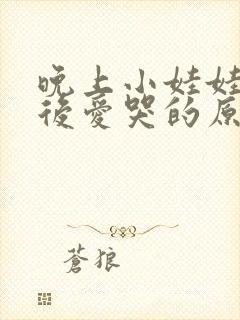 晚上小娃娃
後愛哭的原
蒼狼